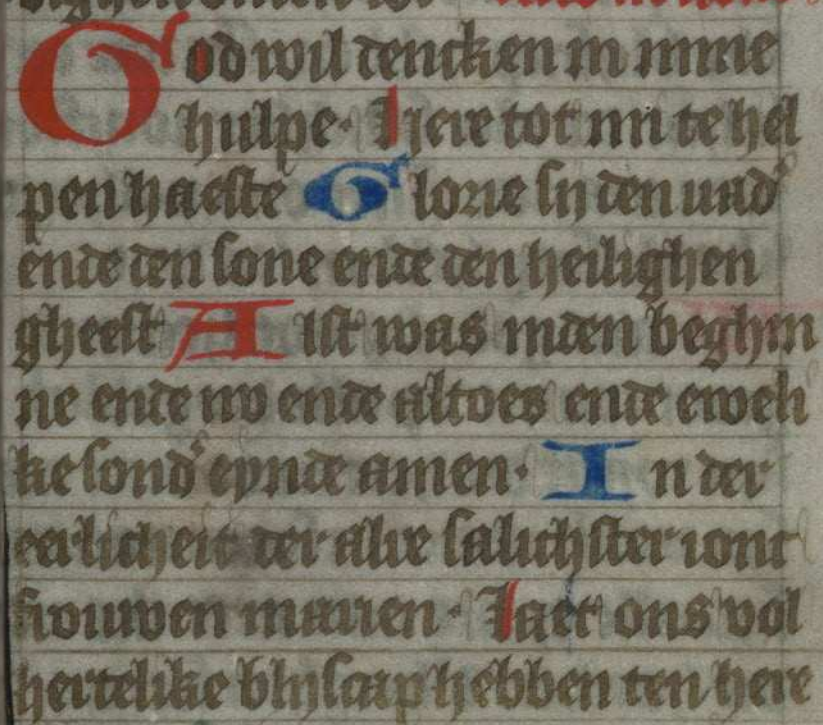 God wil dencken in mine
hulpe. Here tot mi te hel
pen haeste Glorie sy den uad'
ende den sone ende den heilighen
gheest Alst was inden beghin
ne ende nv ende altoes ende eweli
ke sond' eynde amen. In der
eerlicheit der alre salichster ionc
frouwen marien. Laet ons vol
hertelike blyscap hebben ten here